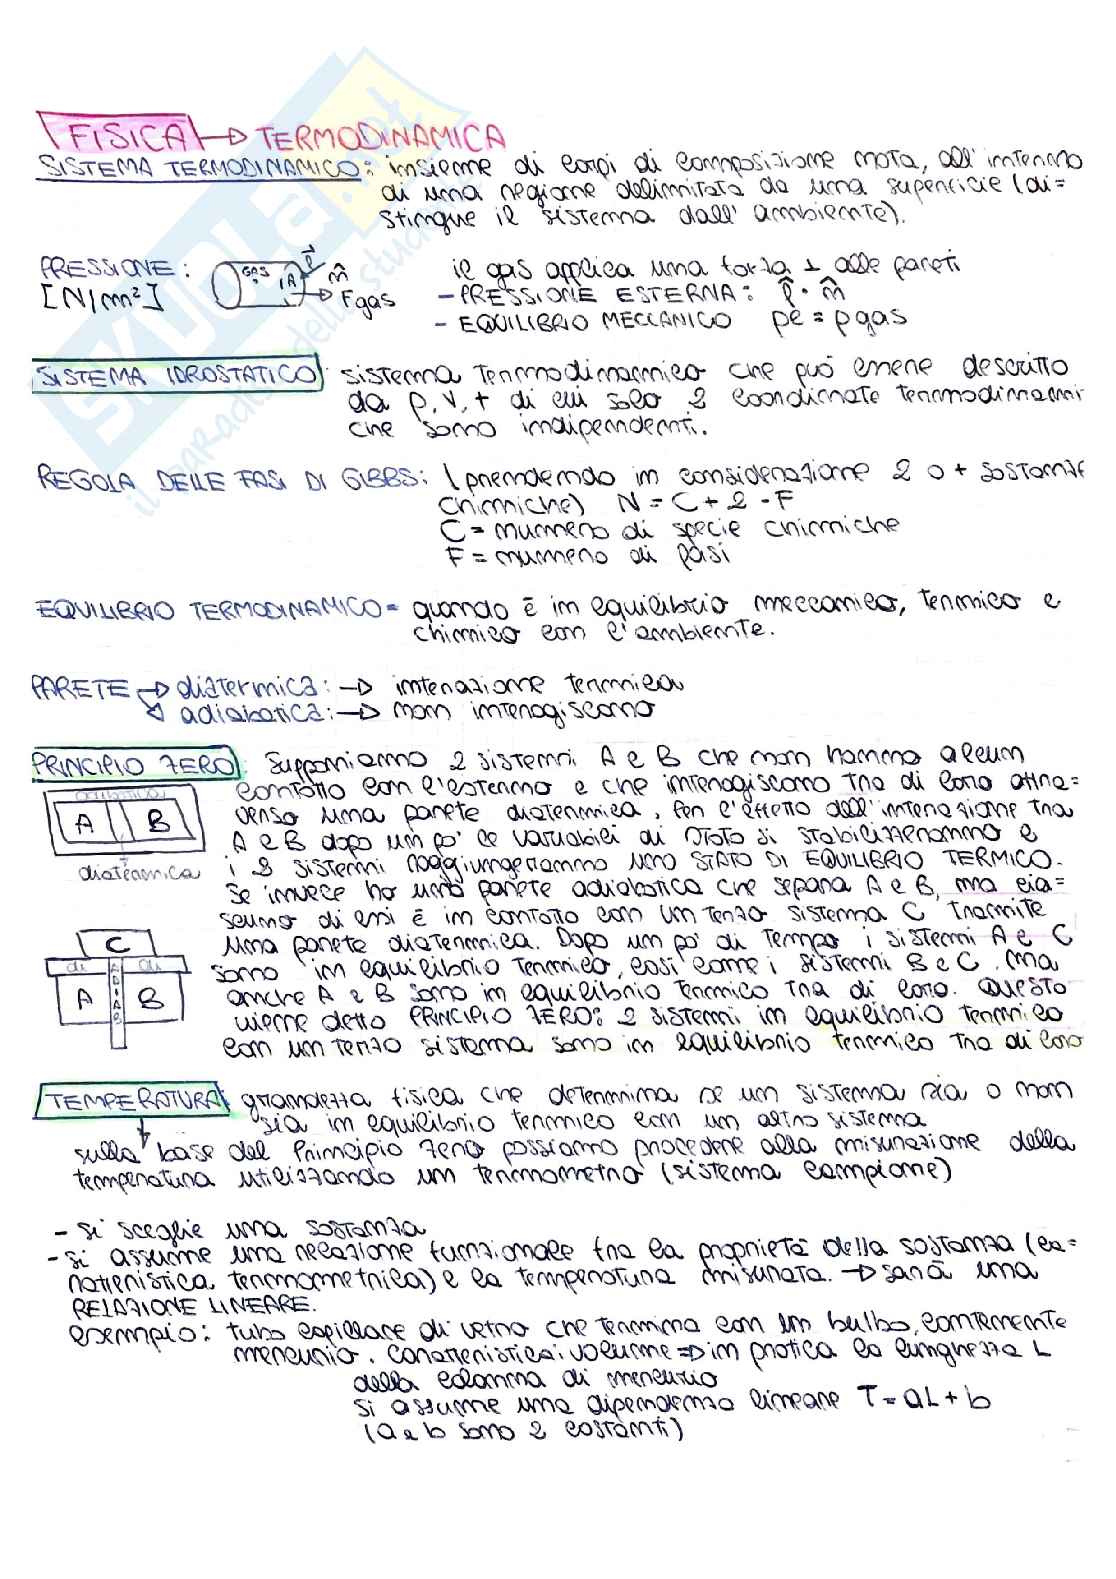 FISICA → TERMODINAMICA
SISTEMA TERMODINAMICO: insieme di corpi di composizione nota, all'interno
di una regione delimitata da una superficie (di=
stingue il sistema dall'ambiente).
PRESSIONE: il gas applica una forza ⊥ alle pareti
[N/m²] GAS A n̂ Fgas - PRESSIONE ESTERNA: p̂ · n̂
- EQUILIBRIO MECCANICO pe = pgas
SISTEMA IDROSTATICO: sistema termodinamico che può essere descritto
da p, V, t di cui solo 2 coordinate termodinami
che sono indipendenti.
REGOLA DELLE FASI DI GIBBS: (prendendo in considerazione 2 o + sostanze
chimiche) N = C + 2 - F
C = numero di specie chimiche
F = numero di fasi
EQUILIBRIO TERMODINAMICO = quando è in equilibrio meccanico, termico e
chimico con l'ambiente.
PARETE → diatermica: → interazione termica
→ adiabatica: → non interagiscono
PRINCIPIO ZERO: Supponiamo 2 sistemi A e B che non hanno alcun
contatto con l'esterno e che interagiscono tra di loro attra=
verso una parete diatermica. Per l'effetto dell'interazione tra
A e B dopo un po' le variabili di stato si stabilizzeranno e
i 2 sistemi raggiungeranno uno STATO DI EQUILIBRIO TERMICO.
adiabatica
A B
diatermica
Se invece ho una parete adiabatica che separa A e B, ma cia=
scuno di essi è in contatto con un terzo sistema C tramite
una parete diatermica. Dopo un po' di tempo i sistemi A e C
sono in equilibrio termico, così come i sistemi B e C. Ma
anche A e B sono in equilibrio termico tra di loro. Questo
viene detto PRINCIPIO ZERO: 2 sistemi in equilibrio termico
con un terzo sistema sono in equilibrio termico tra di loro
C
di di
A ADIAB B
TEMPERATURA: grandezza fisica che determina se un sistema sia o non
sia in equilibrio termico con un altro sistema
sulla base del Principio Zero possiamo procedere alla misurazione della
temperatura utilizzando un termometro (sistema campione)
- si sceglie una sostanza
- si assume una relazione funzionale tra la proprietà della sostanza (ca=
ratteristica termometrica) e la temperatura misurata. → sarà una
RELAZIONE LINEARE.
esempio: tubo capillare di vetro che termina con un bulbo, contenente
mercurio. Caratteristica: volume ⇒ in pratica la lunghezza L
della colonna di mercurio
Si assume una dipendenza lineare T = aL + b
(a e b sono 2 costanti)